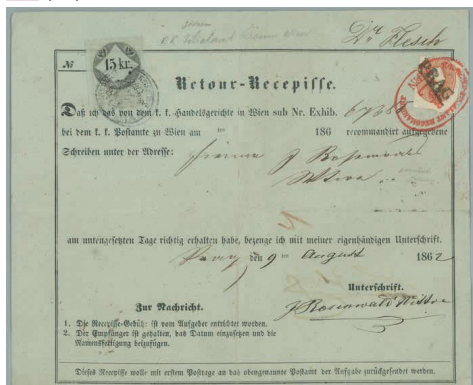 Dr Flesch
№
15 kr.
PRAG
Retour-Recepisse.
Daß ich das von dem k. k. Handelsgerichte in Wien sub Nr. Exhib.
bei dem k. k. Postamte zu Wien am ten 186 recommandirt aufgegebene
Schreiben unter der Adresse: Firma J Rosenwald
Witwe
am untengesetzten Tage richtig erhalten habe, bezeuge ich mit meiner eigenhändigen Unterschrift.
Prag den 9 ten August 1862
Unterschrift.
J Rosenwald Witwe
Zur Nachricht.
1. Die Recepisse-Gebühr ist vom Aufgeber entrichtet worden.
2. Der Empfänger ist gehalten, das Datum einzusetzen und die
Namensfertigung beizufügen.
Dieses Recepisse wolle mit erstem Posttage an das obengenannte Postamt der Aufgabe zurückgesendet werden.